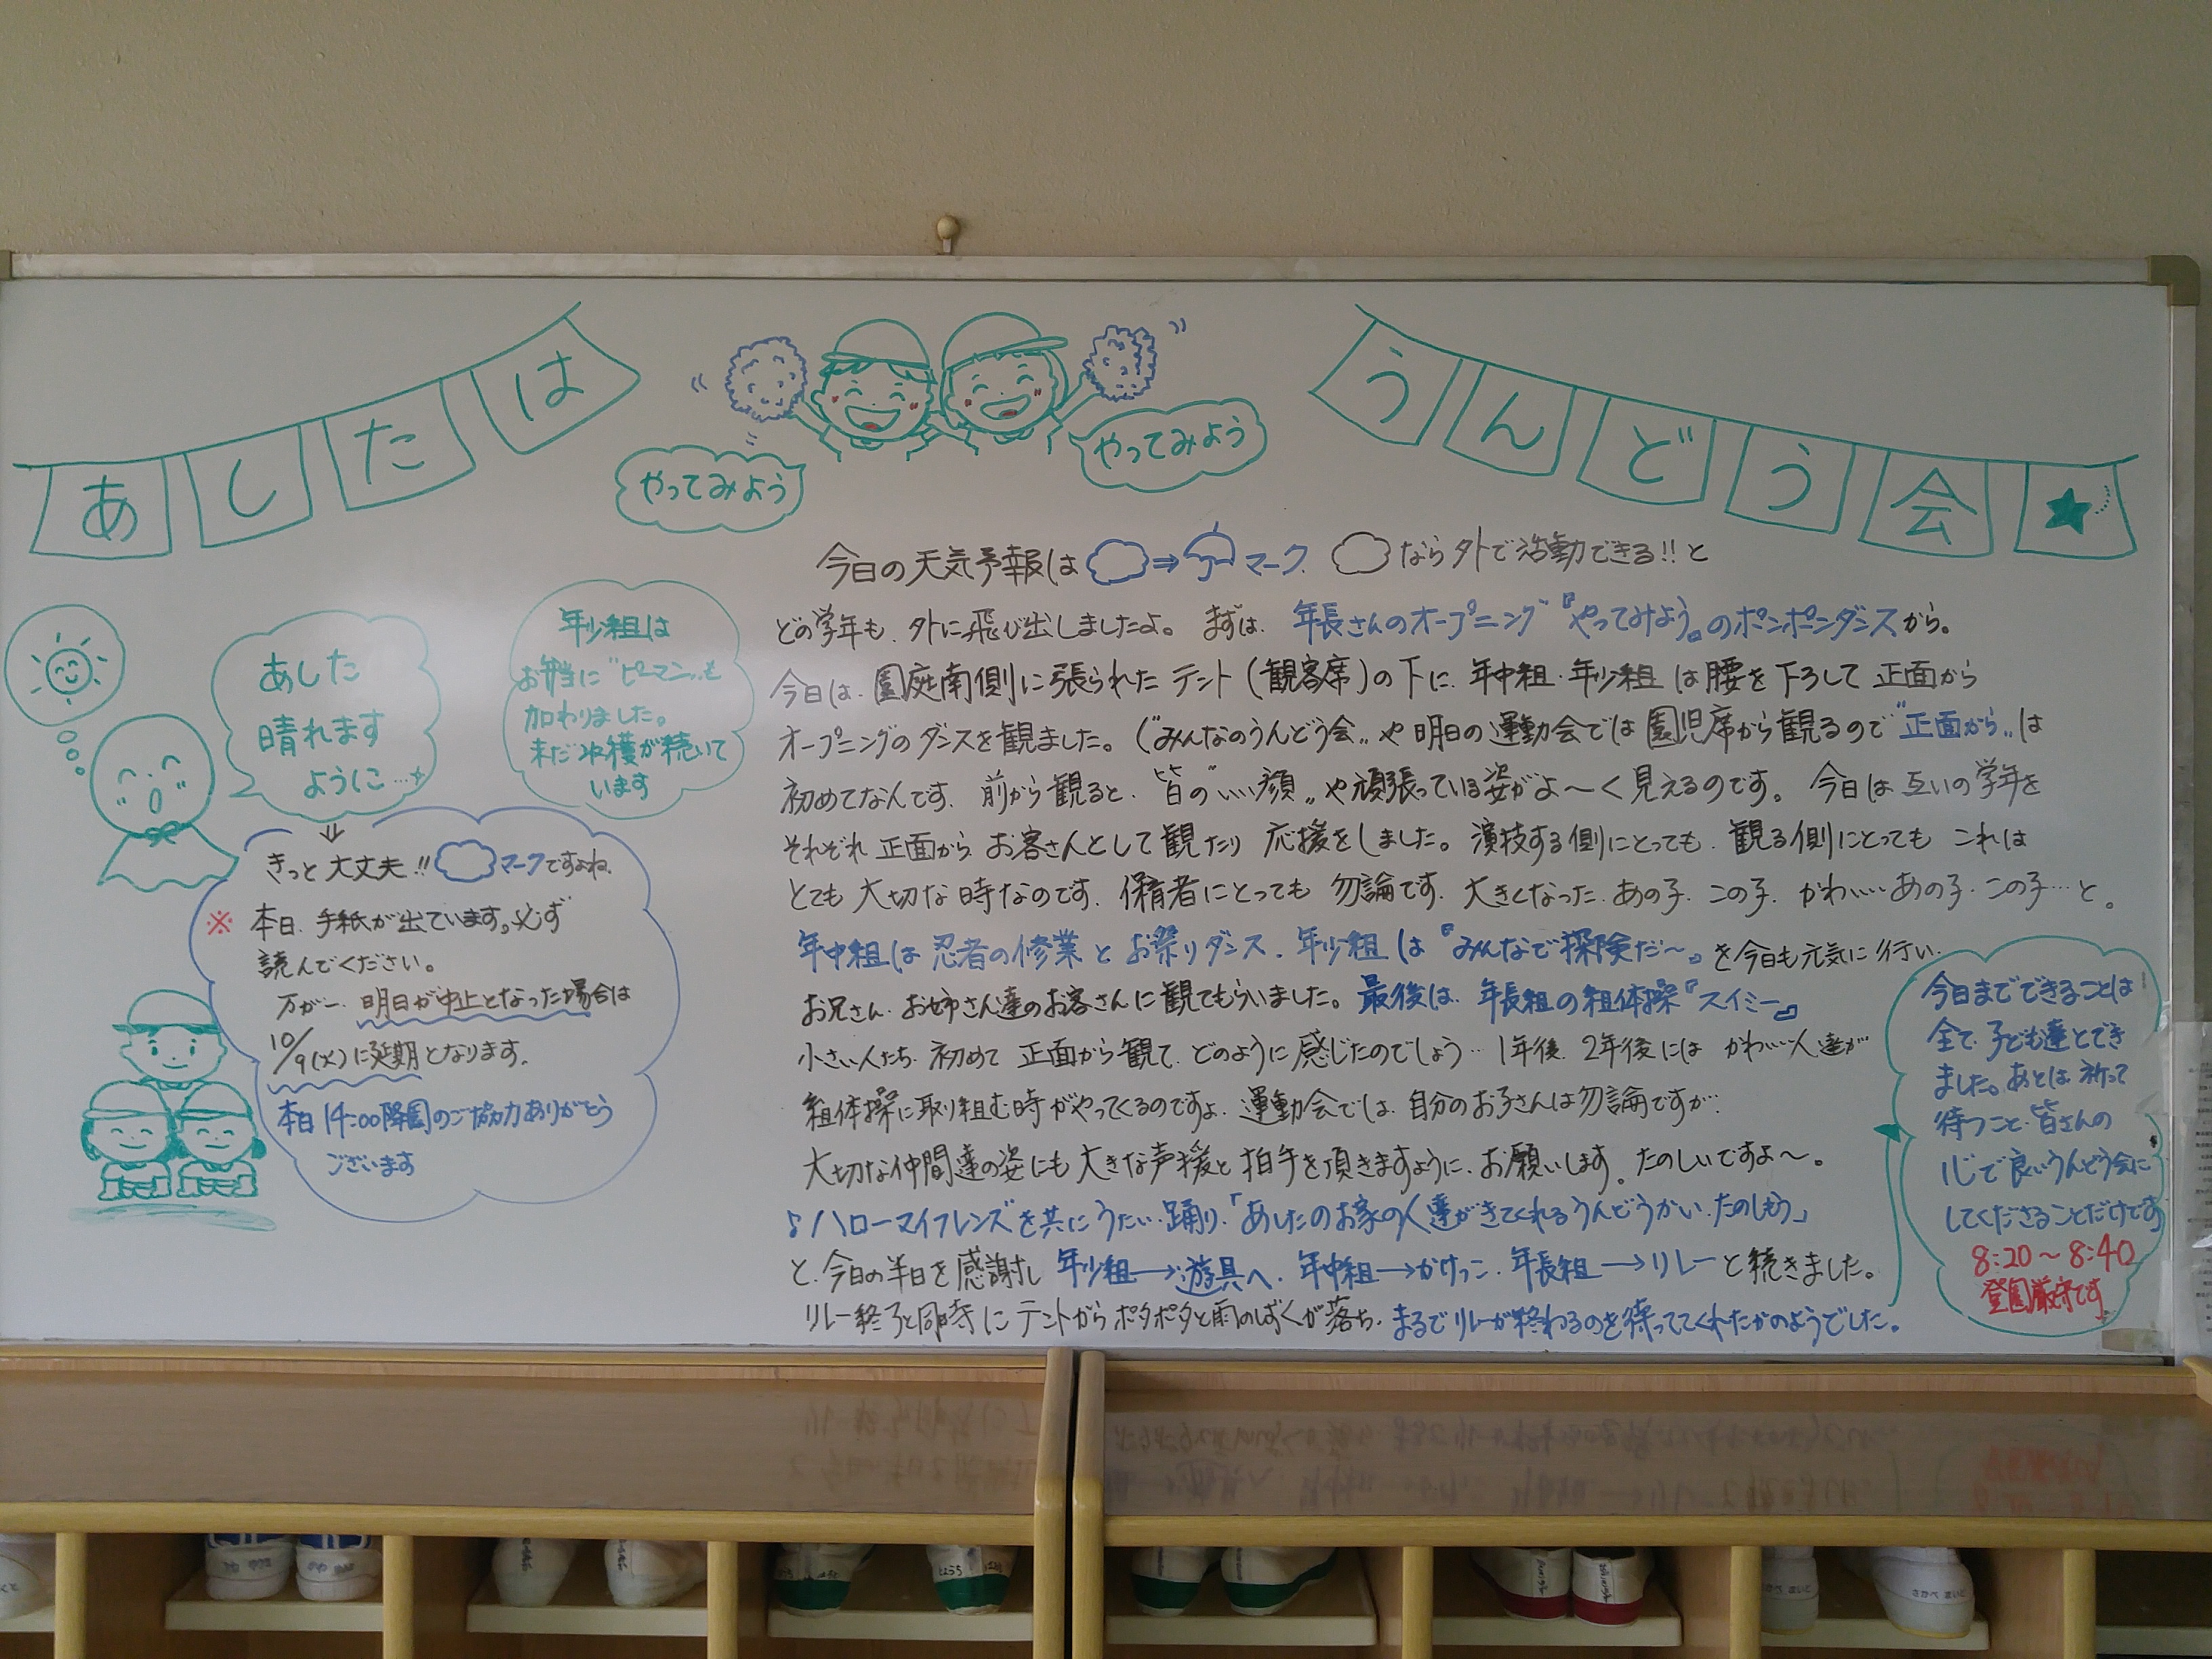 あしたは
うんどう会★
やってみよう
やってみよう
あした
晴れます
ように…
年少組は
お弁当に〝ピーマン〟も
加わりました。
未だ収穫が続いて
います
きっと大丈夫!!マークですよね
※本日、手紙が出ています。必ず
読んでください。
万が一、明日が中止となった場合は
10/9(火)に延期となります。
本日14:00降園のご協力ありがとう
ございます
今日の天気予報は⇒マーク。なら外で活動できる!!と
どの学年も、外に飛び出しましたよ。まずは、年長さんのオープニング『やってみよう』のポンポンダンスから。
今日は、園庭南側に張られたテント(観客席)の下に、年中組・年少組は腰を下ろして正面から
オープニングのダンスを観ました。(〝みんなのうんどう会〟や明日の運動会では園児席から観るので〝正面から〟は
初めてなんです。前から観ると、皆の〝いい顔〟や頑張っている姿がよ〜く見えるのです。今日は互いの学年を
それぞれ正面からお客さんとして観たり応援をしました。演技する側にとっても、観る側にとってもこれは
とても大切な時なのです。保育者にとっても勿論です。大きくなったあの子、この子、かわいいあの子・この子…と。
年中組は忍者の修業とお祭りダンス、年少組は『みんなで探険だ〜』を今日も元気に行い、
お兄さん、お姉さん達のお客さんに観てもらいました。最後は、年長組の組体操『スイミー』
小さい人たち、初めて正面から観て、どのように感じたのでしょう…1年後、2年後にはかわいい人達が
組体操に取り組む時がやってくるのですよ。運動会では、自分のお子さんは勿論ですが、
大切な仲間達の姿にも大きな声援と拍手を頂きますように、お願いします。たのしいですよ〜。
♪ハローマイフレンズを共にうたい、踊り、「あしたのお家の人達がきてくれるうんどうかい、たのしもう」
と、今日の半日を感謝し年少組→遊具へ、年中組→かけっこ、年長組→リレーと続きました。
リレー終了と同時にテントからポタポタと雨のしずくが落ち、まるでリレーが終わるのを待っててくれたかのようでした。
今日までできることは
全て、子ども達とでき
ました。あとは、祈って
待つこと、皆さんの
心で良いうんどう会に
してくださることだけです
8:20〜8:40
登園厳守です
さかべ さいと